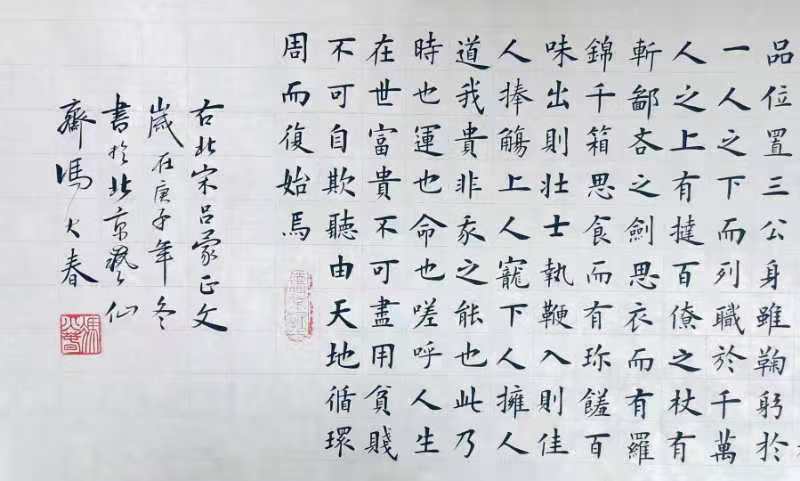 品位置三公身雖鞠躬於
一人之下而列職於千萬
人之上有撻百僚之杖有
斬鄙吝之劍思衣而有羅
錦千箱思食而有珎饈百
味出則壯士執鞭入則佳
人捧觴上人寵下人擁人
道我貴非我之能也此乃
時也運也命也嗟呼人生
在世富貴不可盡用貧賤
不可自欺聽由天地循環
周而復始焉
右北宋呂蒙正文
歲在庚子年冬
書於北京藝仙
齋馮大春